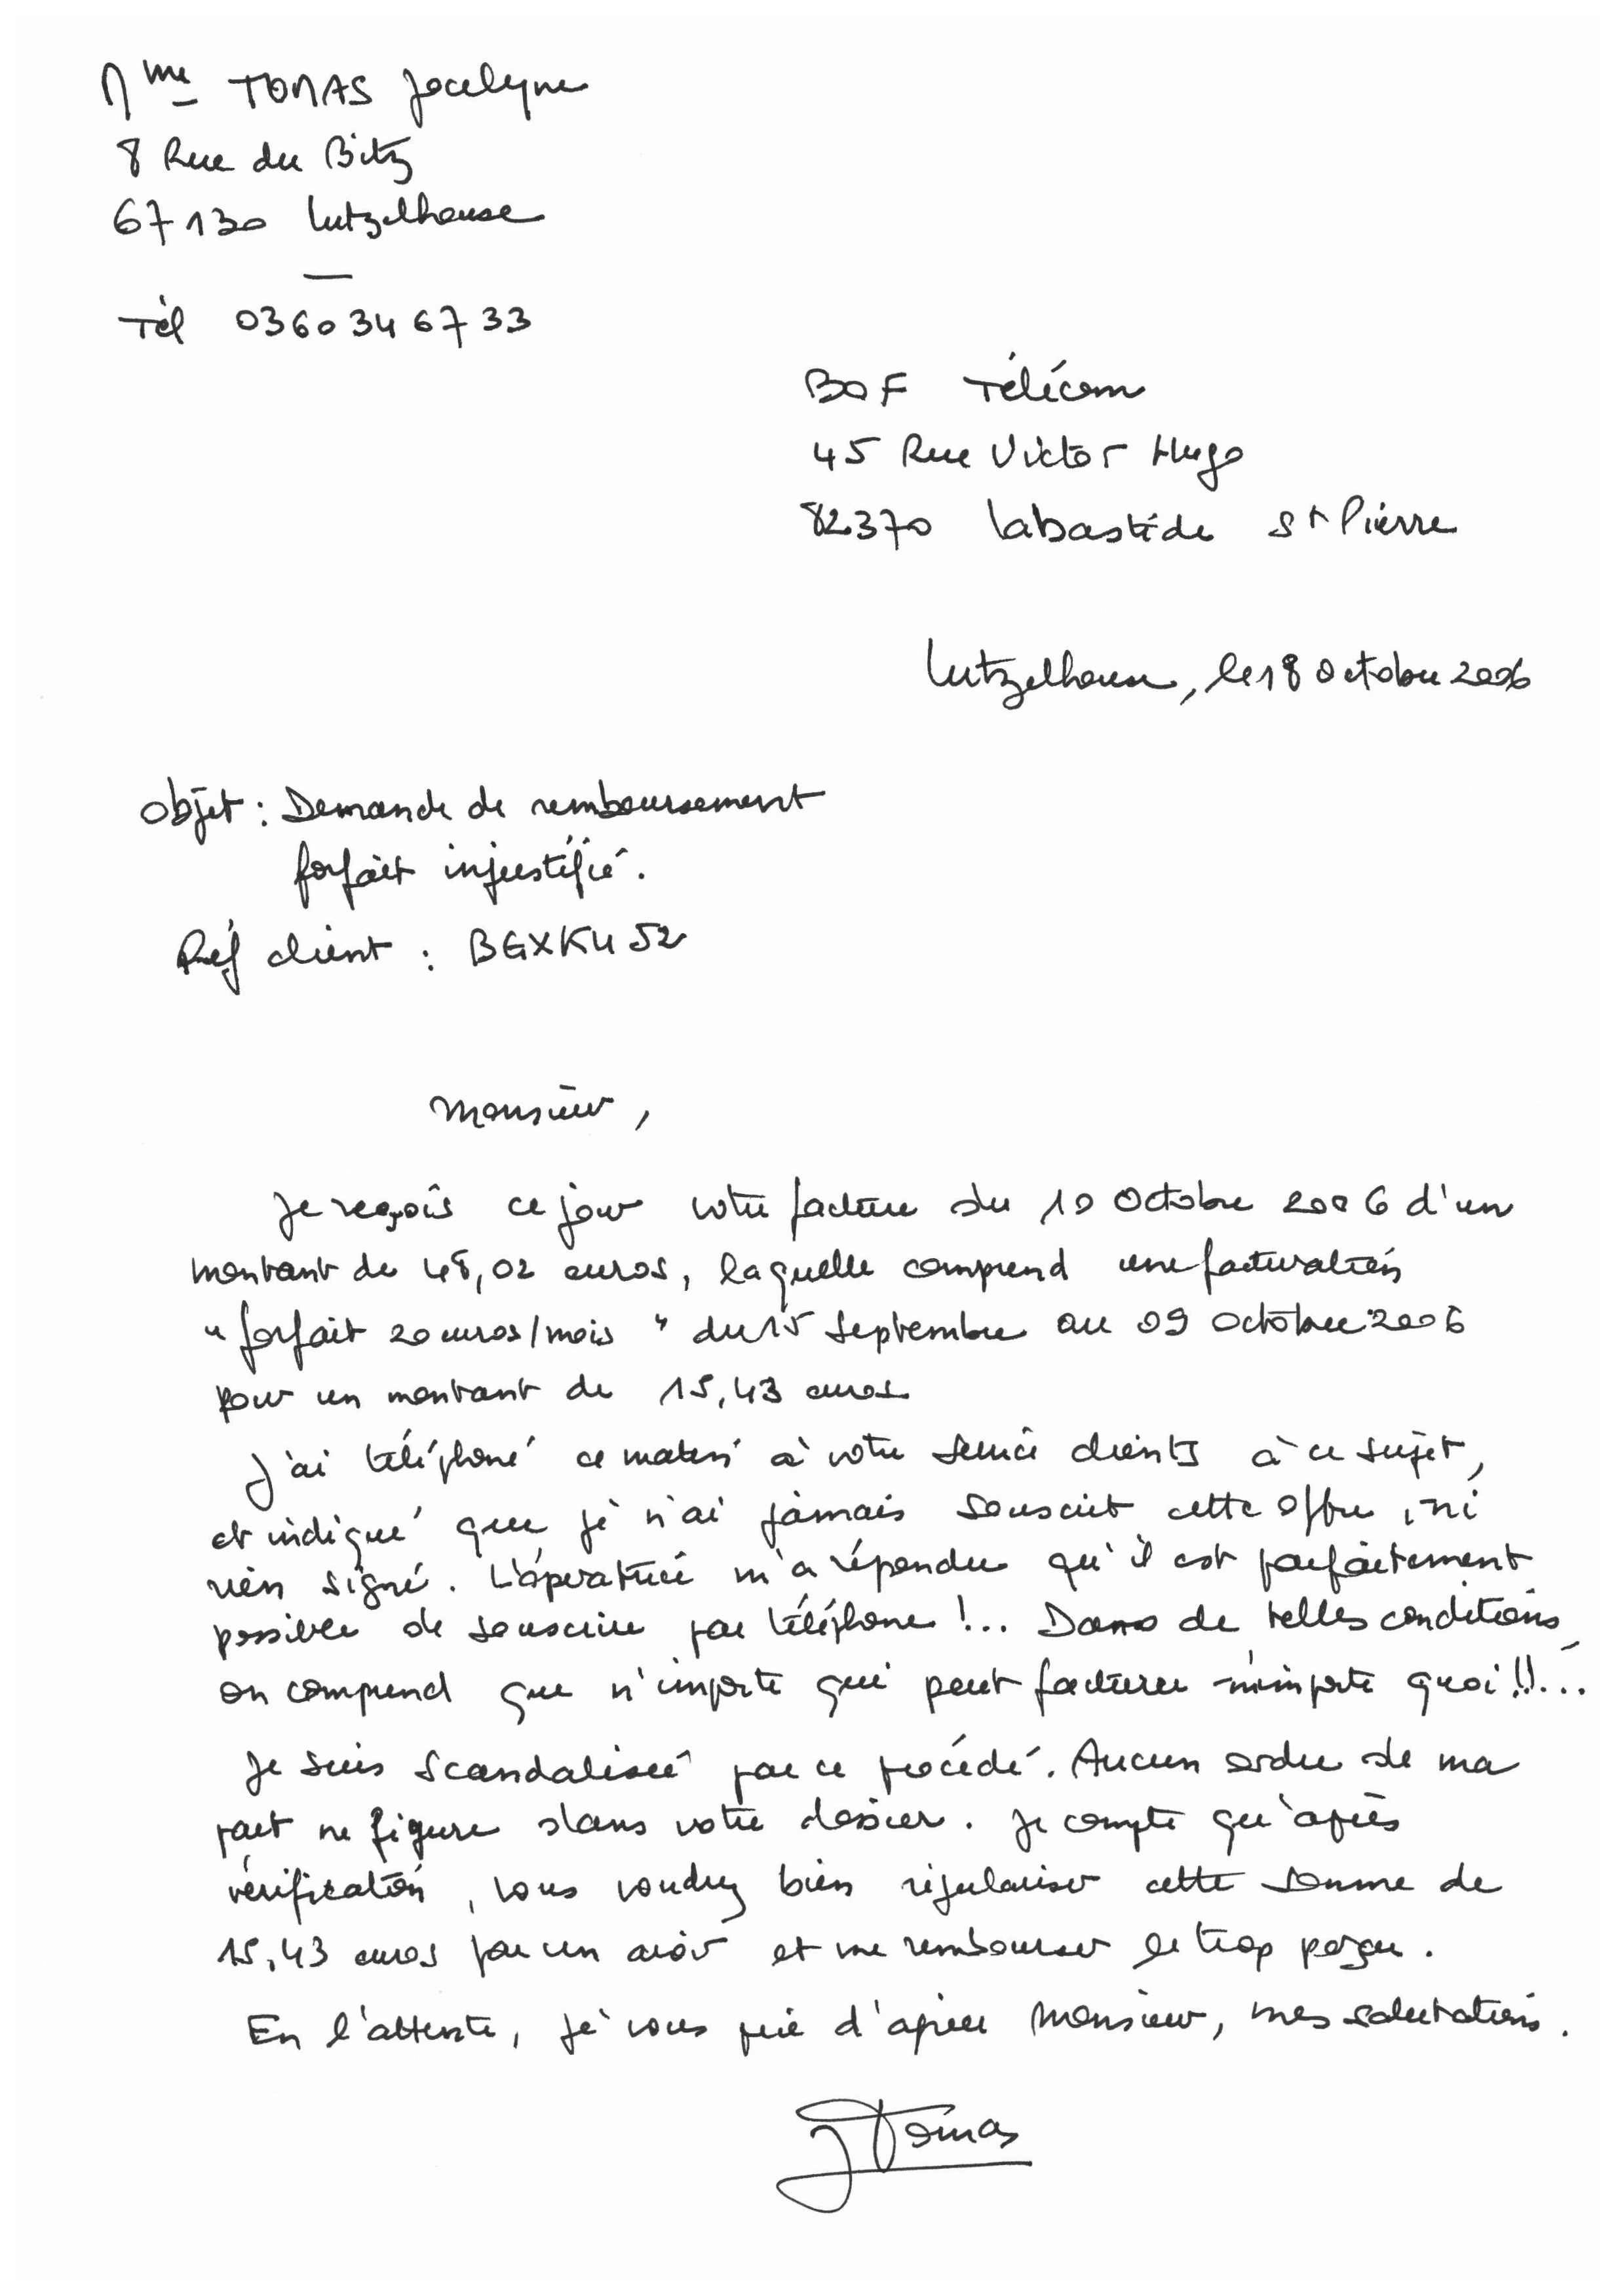 Mme TOMAS Jocelyne
8 Rue du Bitz
67130 Lutzelhouse
Tél 0360346733
BOF Télécom
45 Rue Victor Hugo
82370 Labastide St Pierre
Lutzelhouse, le 18 Octobre 2006
Objet : Demande de remboursement
forfait injustifié.
Réf client : BGXKU52
Monsieur,
Je reçois ce jour votre facture du 10 Octobre 2006 d'un
montant de 48,02 euros, laquelle comprend une facturation
"forfait 20 euros/mois" du 15 Septembre au 09 Octobre 2006
pour un montant de 15,43 euros
J'ai téléphoné ce matin à votre service clients à ce sujet,
et indiqué que je n'ai jamais souscrit cette offre, ni
rien signé. L'opératrice m'a répondu qu'il est parfaitement
possible de souscrire par téléphone !... Dans de telles conditions,
on comprend que n'importe qui peut facturer n'importe quoi !!...
Je suis scandalisée par ce procédé. Aucun ordre de ma
part ne figure dans votre dossier. Je compte qu'après
vérification, vous voudrez bien régulariser cette somme de
15,43 euros par un avoir et me rembourser le trop perçu.
En l'attente, je vous prie d'agréer Monsieur, mes salutations.
JTomas